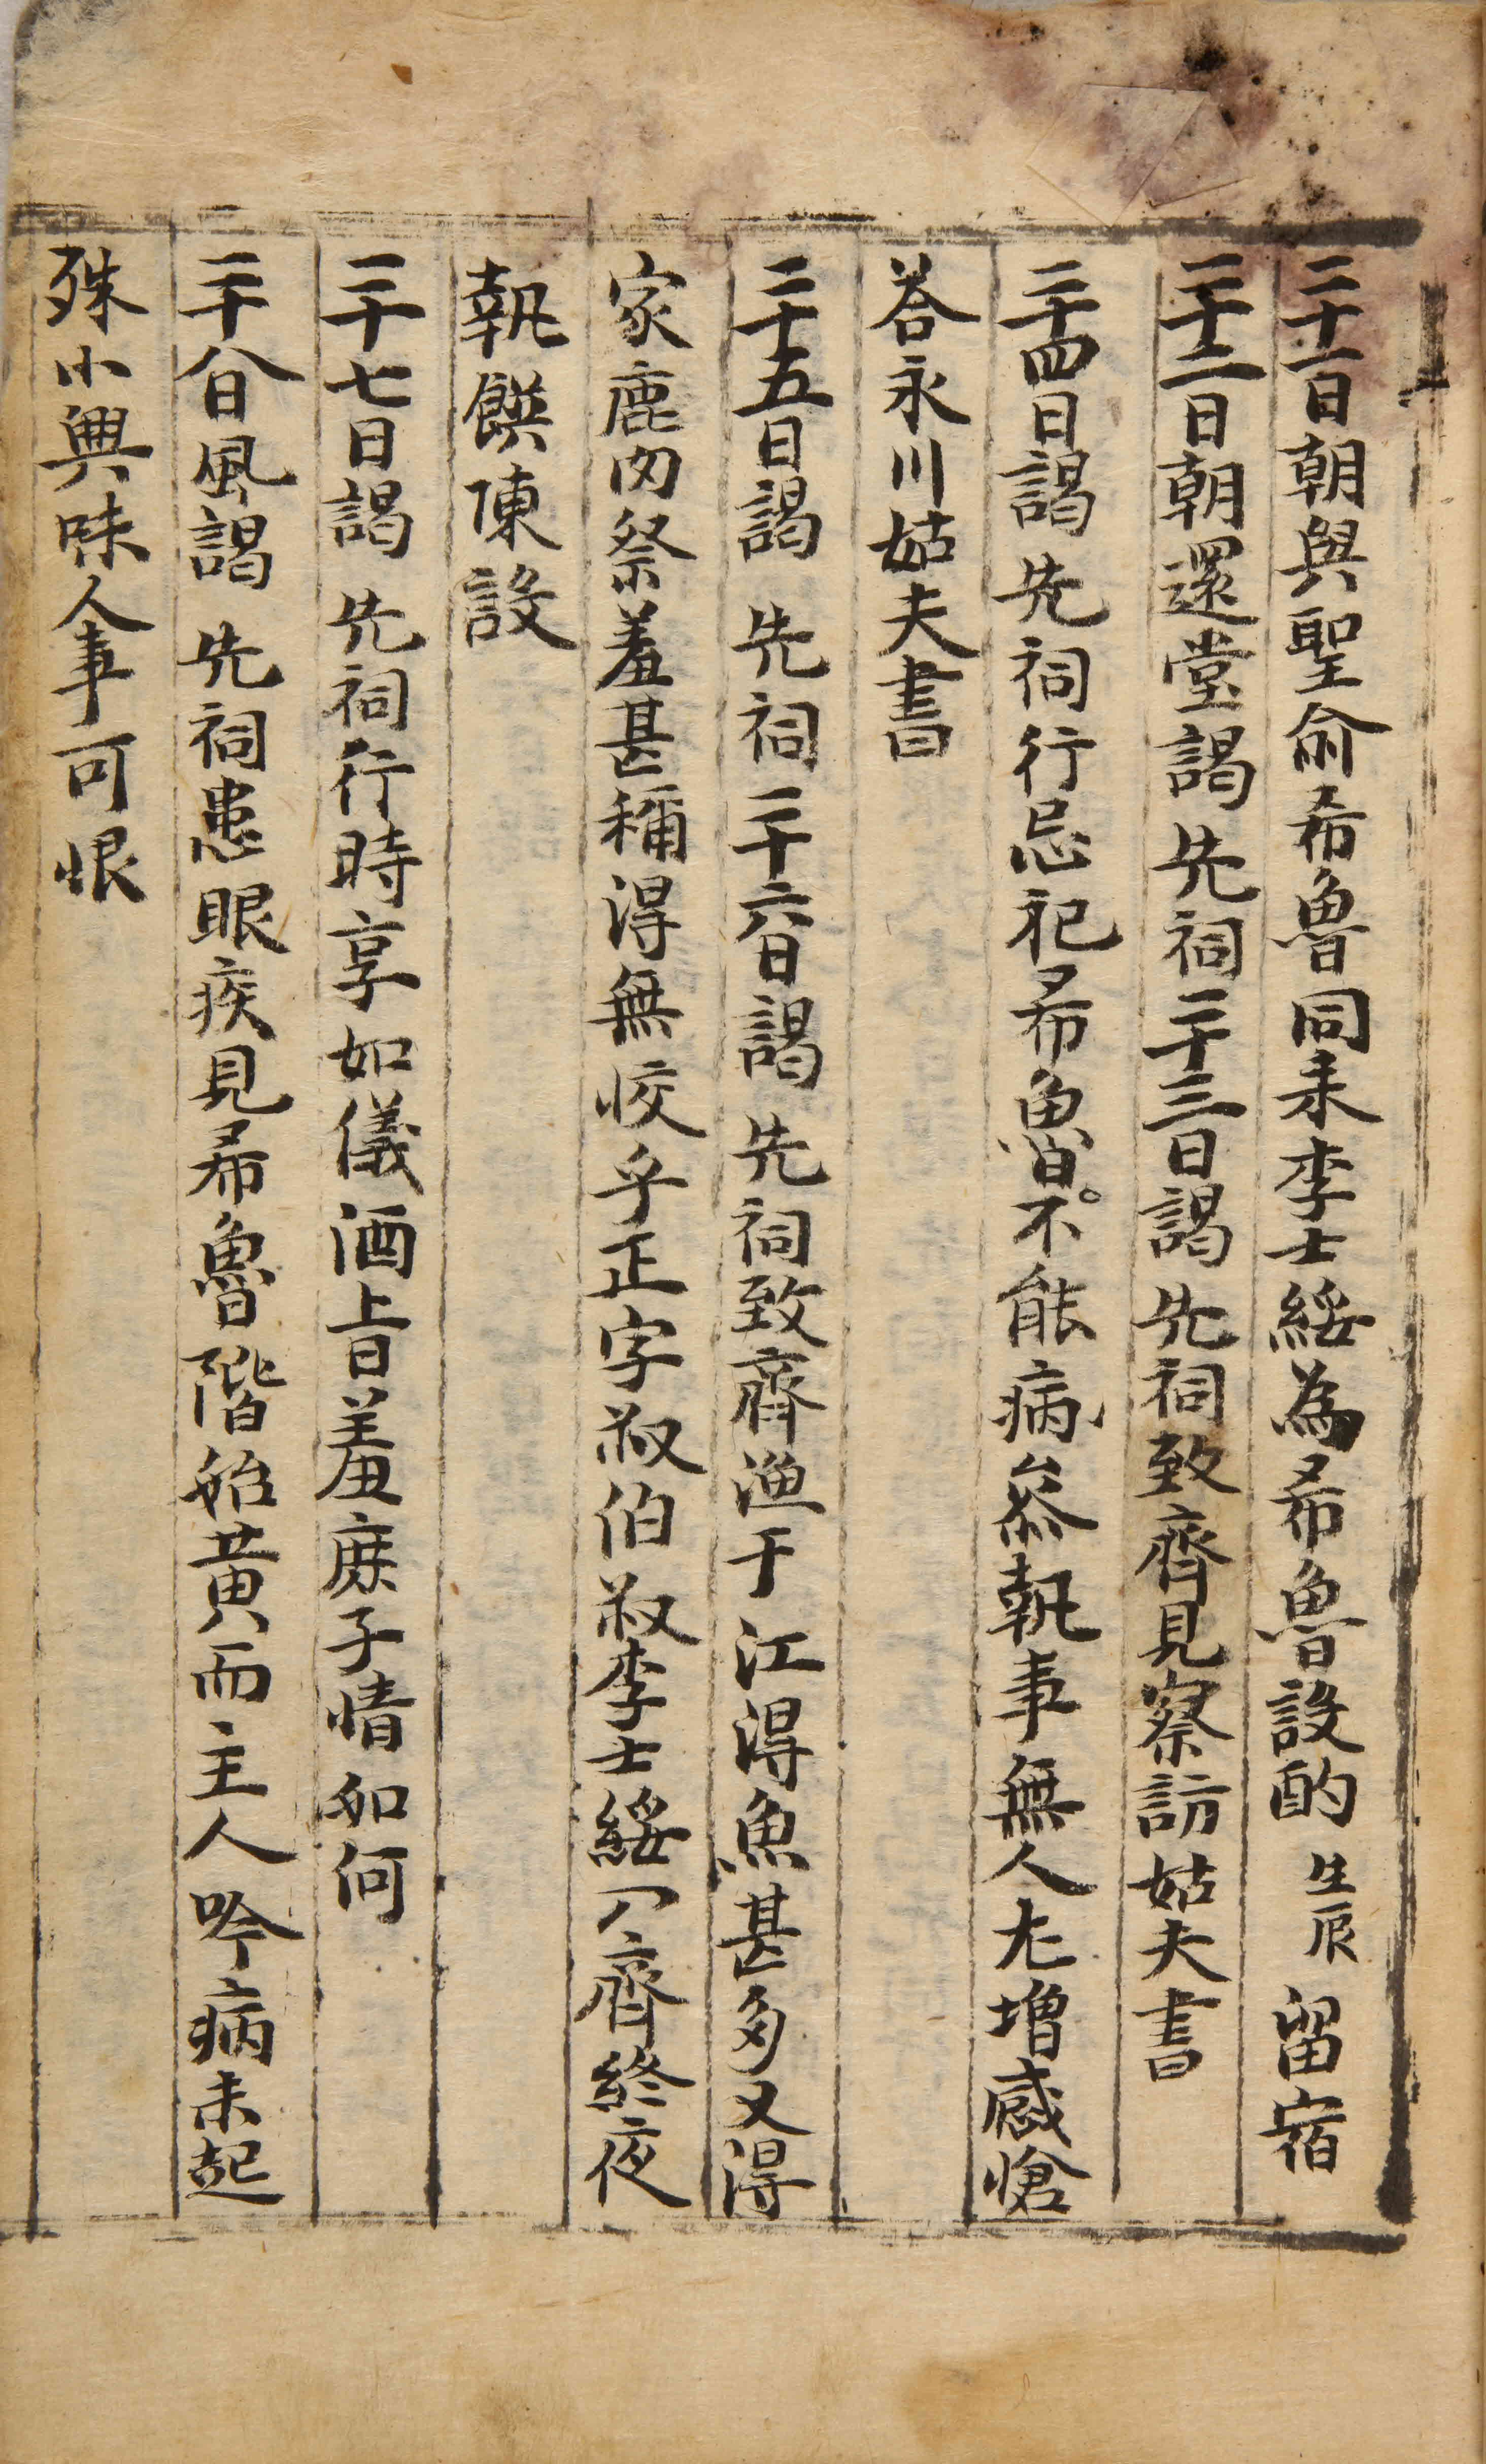 二十一日朝與聖俞希魯同来李士綏為希魯設酌 生辰 留宿
二十二日朝還堂謁 先祠二十三日謁 先祠致齊見察訪姑夫書
二十四日謁 先祠行忌祀希魯不能病叅執事無人尤増感愴
荅永川姑夫書
二十五日謁 先祠二十六日謁 先祠致齊漁于江得魚甚多又得
家鹿內祭羞甚稱得無恔乎正字叔伯叔李士綏入齊終夜
執饌陳設
二十七日謁 先祠行時享如儀酒旨羞庶子情如何
二十八日風謁 先祠患眼疾見希魯階始黃而主人吟病未起
殊小興味人事可恨